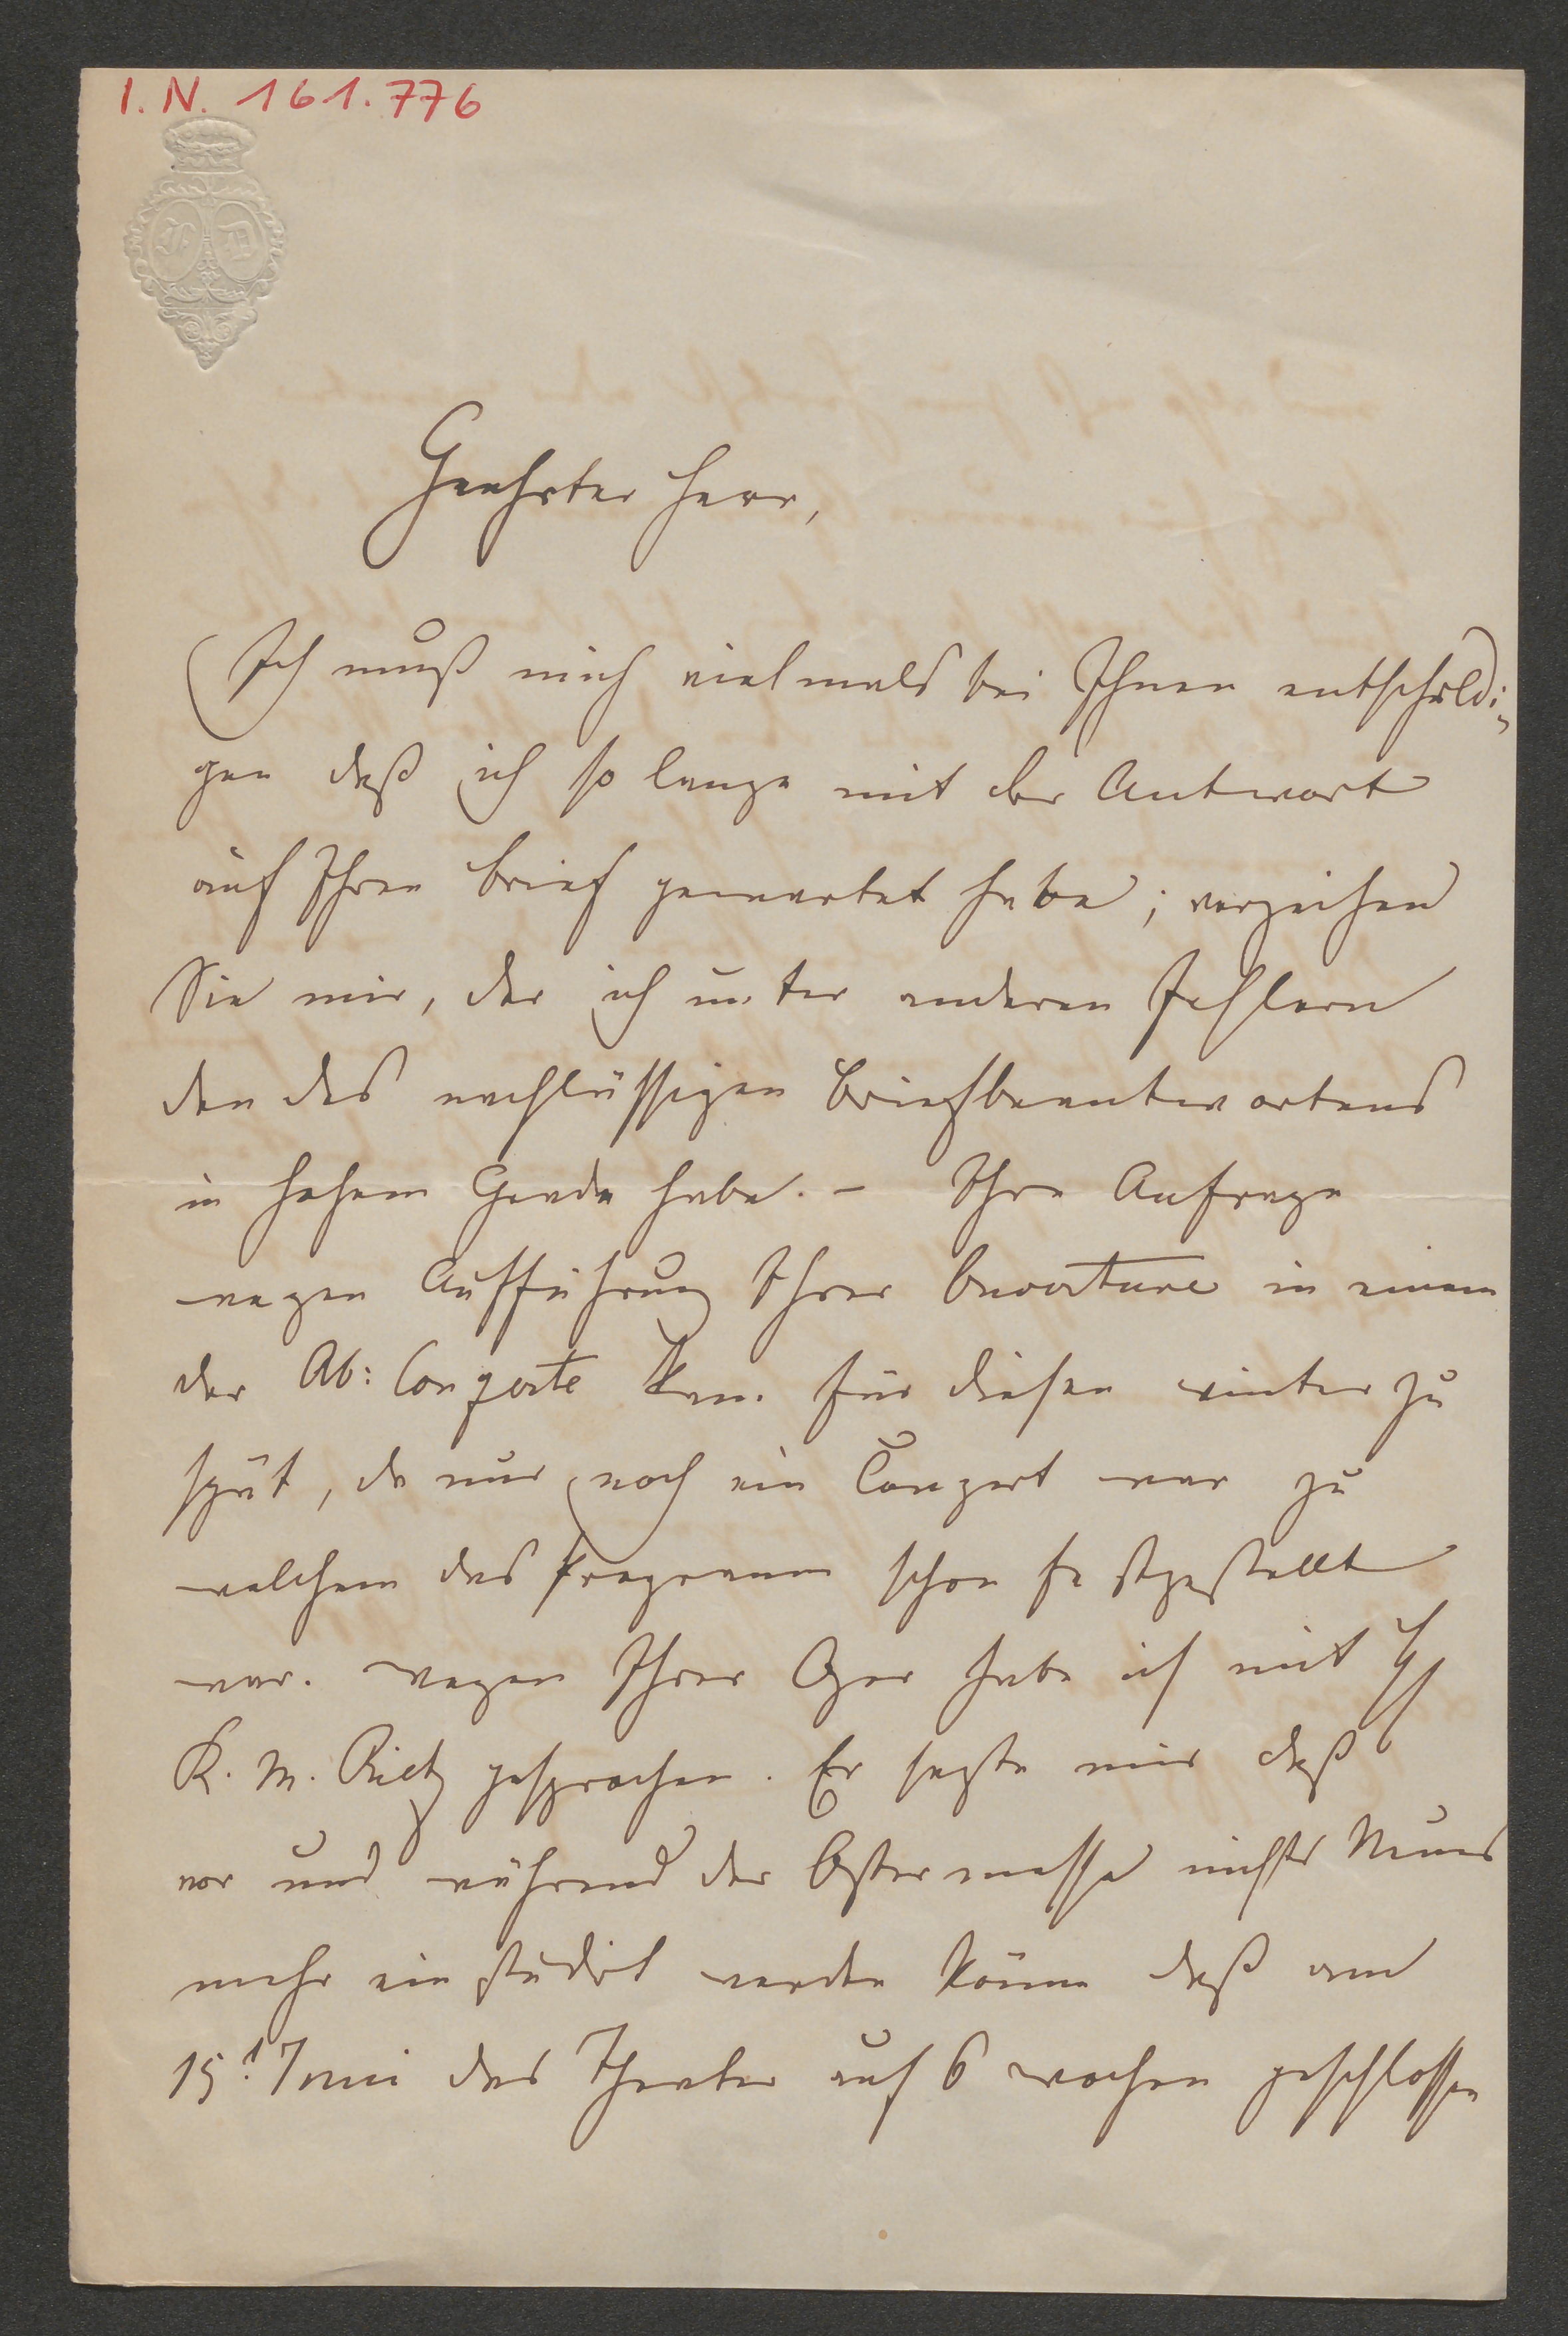 I. N. 161.776
F D
Geehrter Herr,
Ich muß mich vielmals bei Ihnen entschuldi-
gen daß ich so lange mit der Antwort
auf Ihren Brief gewartet habe; verzeihen
Sie mir, der ich unter anderen Fehlern
den des nachlässigen Briefbeantwortens
in hohem Grade habe. – Ihre Anfrage
wegen Aufführung Ihrer Ouverture in einem
der Ab: Conzerte kam für diesen Winter zu
spät, da nur noch ein Conzert war zu
welchem das Programm schon festgestellt
war. Wegen Ihrer Oper habe ich mit H
K. M. Rietz gesprochen. Er sagte mir daß
vor und während der Ostermesse nichts Neues
mehr einstudirt werden könne daß am
15t Juni das Theater auf 6 Wochen geschlossen